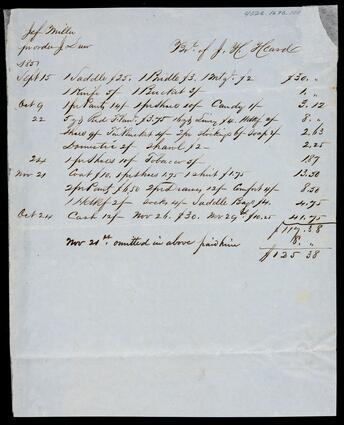 4026.1678.100
Jef Miller
pr order J Law
Bot. of J. H. Heard
1851
Sept 15 1 Saddle $25. 1 Bridle $3. 1 $2 $30. "
1 Knife 5/ 1 Bucket 3/ 1. "
Oct 9 1 pr Pants 14/ 1 pr shoes 10/ Candy 1/ 3.12
22 5 yd Red Flan. $3.75 16 yd Lining $4. Hdkf 2/ 8. "
Shoes 9/ Tin Bucket 5/ 2 pr Stockings 6/ Soap 4/ 2.63
Domestic 2/ Shawl $2- 2.25
24 1 pr shoes 10/ Tobacco 5/ 187
Nov 21 Coat $10. 1 pr shoes 175 1 shirt $1.75 13.50
2 pr Pants $6.50 2 pr Drawers 12/ Comfort 4/ 8.50
1 Hdkf 2/ Socks 4/ Saddle Bags $4. 4.75
Oct 24 Cash 12/ Nov 26. $30. Nov 29th $10.25 41.75
$117.38
Nov 21st omitted in above paid him 8. "
$125 38